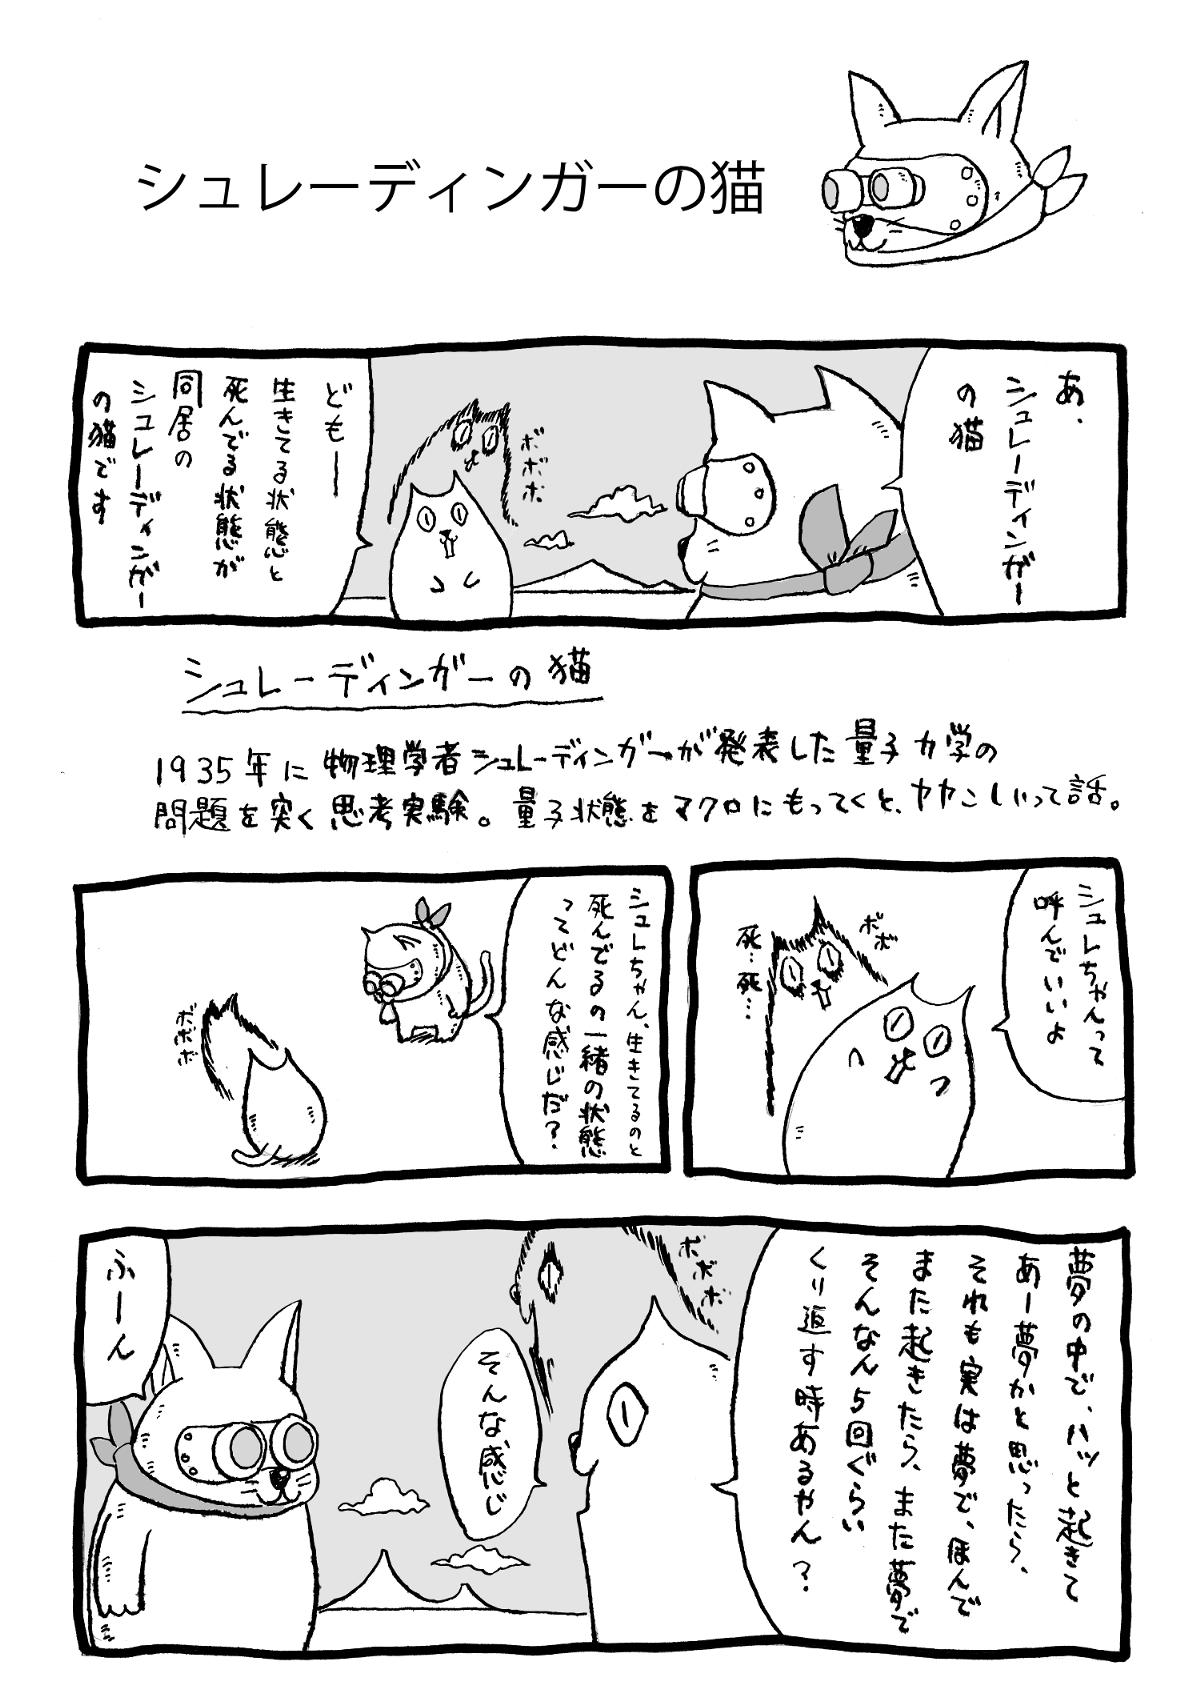 シュレーディンガーの猫
あ、
シュレーディンガー
の猫
ボボボ
どもー
生きてる状態と
死んでる状態が
同居の
シュレーディンガー
の猫です
シュレーディンガーの猫
1935年に物理学者シュレーディンガーが発表した量子力学の
問題を突く思考実験。量子状態をマクロにもってくと、ヤヤこしいって話。
シュレちゃんって
呼んでいいよ
ボボ
死…死…
シュレちゃん、生きてるのと
死んでるの一緒の状態
ってどんな感じだ?
ボボボ
夢の中で、ハッと起きて
あー夢かと思ったら、
それも実は夢で、ほんで
また起きたら、また夢で
そんなん5回ぐらい
くり返す時あるやん?
ボボボ
そんな感じ
ふーん